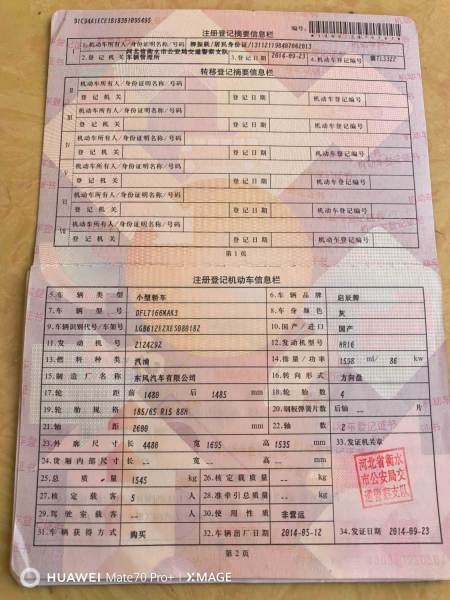 注册登记摘要信息栏
编号:
1.机动车所有人/身份证明名称/号码
居民身份证
河北省衡水市公安局交通警察支队
2.登记机关 车辆管理所 3.登记日期 2014-09-23 4.机动车登记编号
转移登记摘要信息栏
机动车所有人/身份证明名称/号码
登记机关 登记日期 机动车登记编号
机动车所有人/身份证明名称/号码
登记机关 登记日期 机动车登记编号
机动车所有人/身份证明名称/号码
登记机关 登记日期 机动车登记编号
机动车所有人/身份证明名称/号码
登记机关 登记日期 机动车登记编号
机动车所有人/身份证明名称/号码
登记机关 登记日期 机动车登记编号
机动车所有人/身份证明名称/号码
登记机关 登记日期 机动车登记编号
第1页
注册登记机动车信息栏
5.车辆类型 小型轿车 6.车辆品牌 启辰牌
7.车辆型号 DFL7166MAK3 8.车身颜色 灰
9.车辆识别代号/车架号 10.国产/进口 国产
11.发动机号 Z12429Z 12.发动机型号 HR16
13.燃料种类 汽油 14.排量/功率 1598 ml/ 86 kw
15.制造厂名称 东风汽车有限公司 16.转向形式 方向盘
17.轮距 前 1480 后 1485 mm 18.轮胎数 4
19.轮胎规格 185/65 R15 88H 20.钢板弹簧片数 后轴 -- 片
21.轴距 2600 mm 22.轴数 2
23.外廓尺寸 长 4480 宽 1695 高 1535 mm 33.发证机关章
24.货厢内部尺寸 长 -- 宽 -- 高 -- mm
河北省衡水市公安局交通警察支队
25.总质量 1545 kg 26.核定载质量 -- kg
27.核定载客 5 人 28.准牵引总质量 -- kg
29.驾驶室载客 -- 人 30.使用性质 非营运
31.车辆获得方式 购买 32.车辆出厂日期 2014-05-12 34.发证日期 2014-09-23
第2页
HUAWEI Mate70 Pro+ | XMAGE